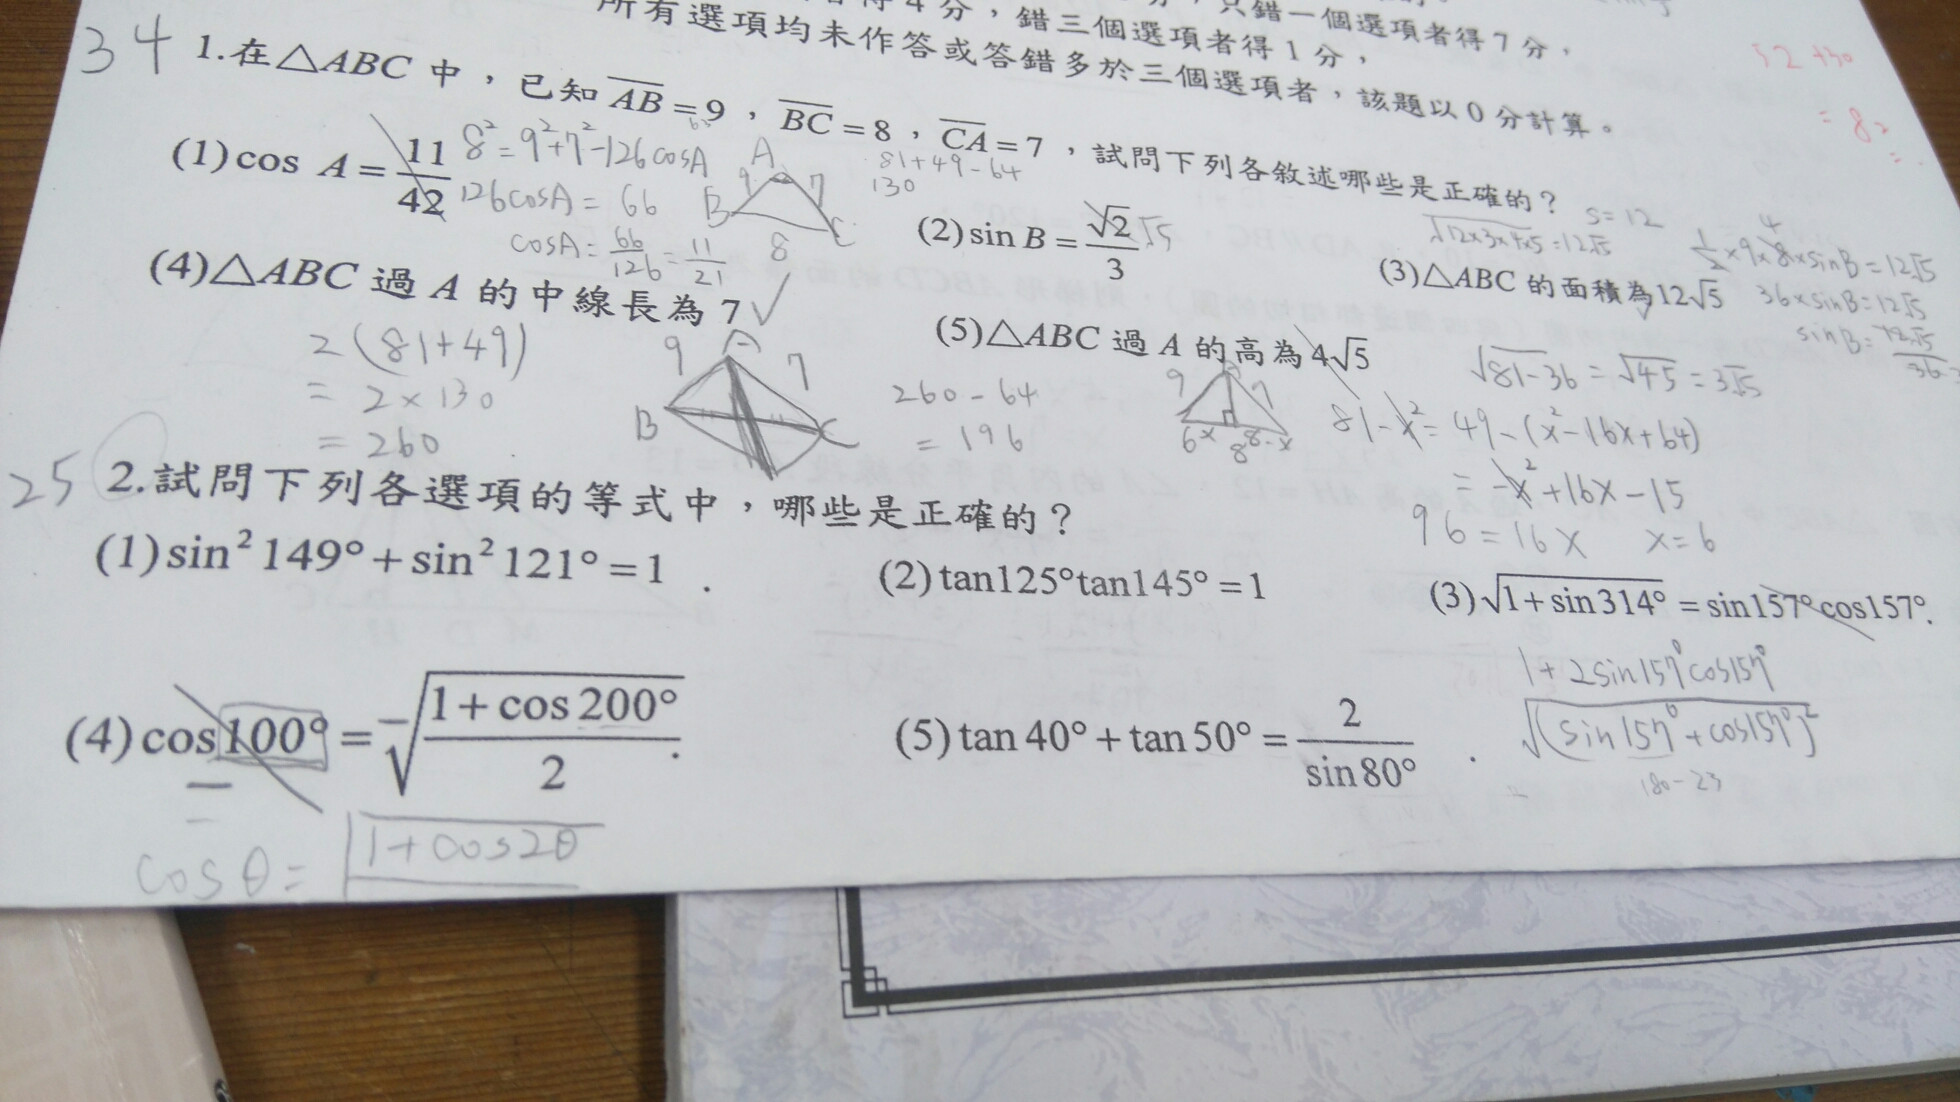 得4分,錯三個選項者得1分,
只錯一個選項者得7分,
所有選項均未作答或答錯多於三個選項者,該題以0分計算。
52+30
= 82
34
1.在△ABC 中,已知 \overline{AB}=9,\overline{BC}=8,\overline{CA}=7,試問下列各敘述哪些是正確的?
(1)cos A=11/42
8²=9²+7²-126cosA
126cosA = 66
cosA= 66/126 = 11/21
A
9 7
B C
8
81+49-64
130
(2)sin B=√2/3
√5
S=12
√12×3×4×5=12√5
(3)△ABC 的面積為12√5
4
1/2×9×8×sinB=12√5
36×sinB=12√5
sinB=12√5/36
(4)△ABC 過 A 的中線長為 7
2(81+49)
= 2×130
= 260
9 A 7
B C
260-64
= 196
(5)△ABC 過 A 的高為 4√5
9 7
6 x 8 8-x
√81-36 = √45 = 3√5
81-x²= 49-(x²-16x+64)
= -x²+16x-15
96=16x x=6
25
2.試問下列各選項的等式中,哪些是正確的?
(1)sin²149°+sin²121°=1
(2)tan125°tan145°=1
(3)√1+sin314°=sin157°cos157°.
1+2sin157°cos157°
√(sin157°+cos157°)²
180-23
(4)cos100°=-√1+cos200°/2.
(5)tan 40°+tan 50°=2/sin80°
cosθ= √1+cos2θ